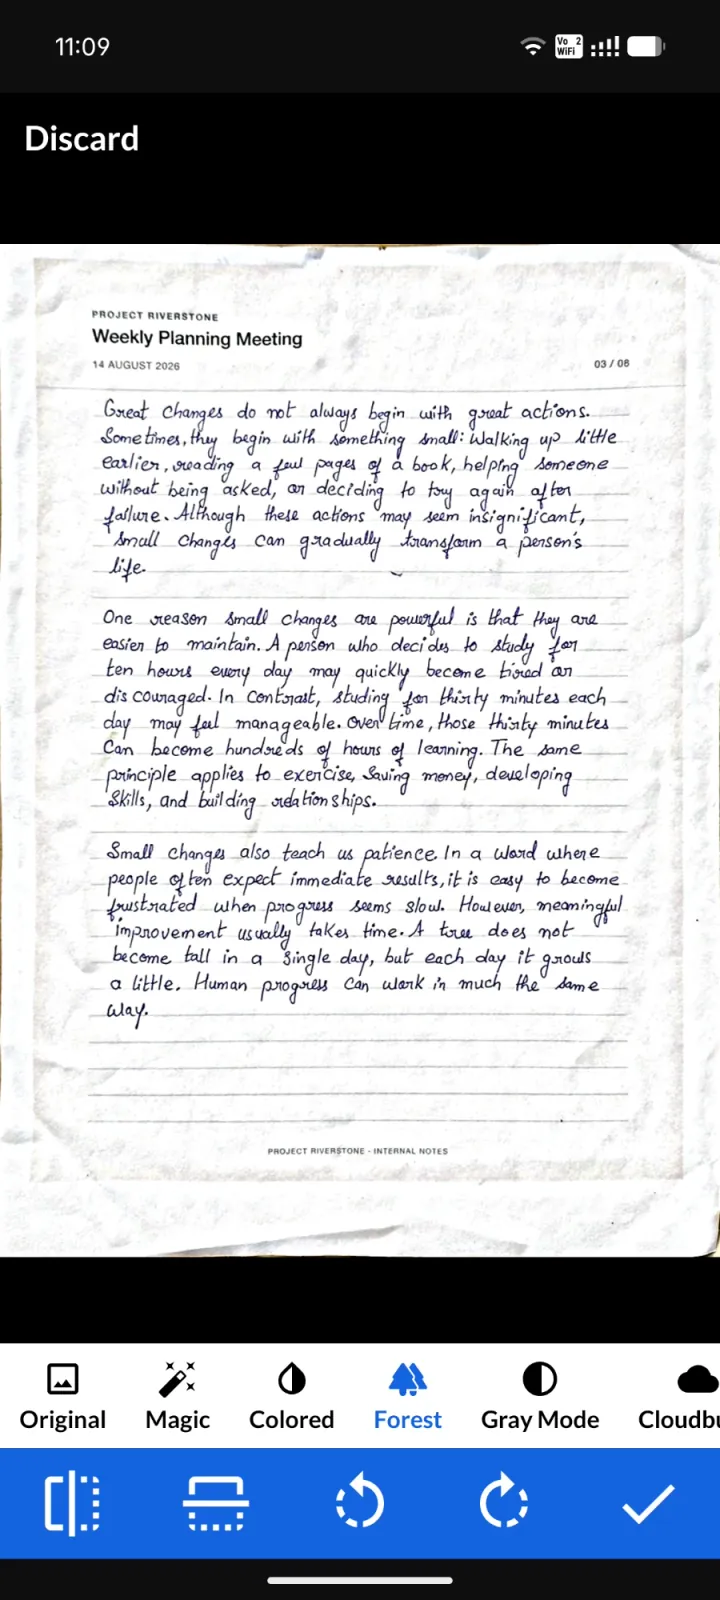 11:09
Vo 2
WiFi
Discard
PROJECT RIVERSTONE
Weekly Planning Meeting
14 AUGUST 2026
03 / 08
Great Changes do not always begin with great actions.
Sometimes, they begin with something small: Walking up little
earlier, reading a few pages of a book, helping someone
without being asked, or deciding to try again after
failure. Although these actions may seem insignificant,
small changes can gradually transform a person's
life.
One reason small changes are powerful is that they are
easier to maintain. A person who decides to study for
ten hours every day may quickly become tired or
discouraged. In Contrast, studing for thirty minutes each
day may feel manageable. Over time, those thirty minutes
Can become hundreds of hours of learning. The same
principle applies to exercise, Saving money, developing
Skills, and building relationships.
Small changes also teach us patience. In a Word where
people often expect immediate results, it is easy to become
frustrated when progress seems slow. However, meaningful
improvement usually takes time. A tree does not
become tall in a single day, but each day it grows
a little. Human progress Can work in much the same
way.
PROJECT RIVERSTONE - INTERNAL NOTES
Original
Magic
Colored
Forest
Gray Mode
Cloudbu